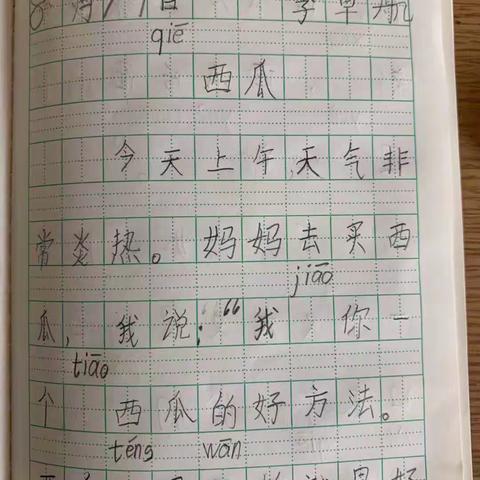 8月 日
qiē
西瓜
今天上午,天气非
常炎热。妈妈去买西
jiāo
瓜,我说:“我 你一
tiāo
个 西瓜的好方法。
téng wān